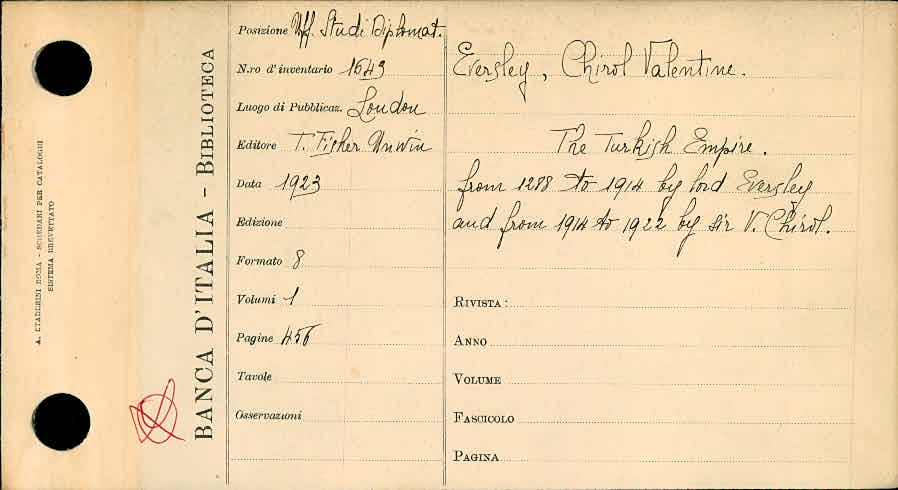 A. STADERINI ROMA - SCHEDARI PER CATALOGHI
SISTEMA BREVETTATO
BANCA D'ITALIA - BIBLIOTECA
Posizione Uff. Studi Diplomat.
N.ro d'inventario 1643
Luogo di Pubblicaz. London
Editore T. Fisher Unwin
Data 1923
Edizione
Formato 8
Volumi 1
Pagine 456
Tavole
Osservazioni
Eversley, Chirol Valentine.
The Turkish Empire.
from 1288 to 1914 by lord Eversley
and from 1914 to 1922 by sir V. Chirol.
RIVISTA:
ANNO
VOLUME
FASCICOLO
PAGINA